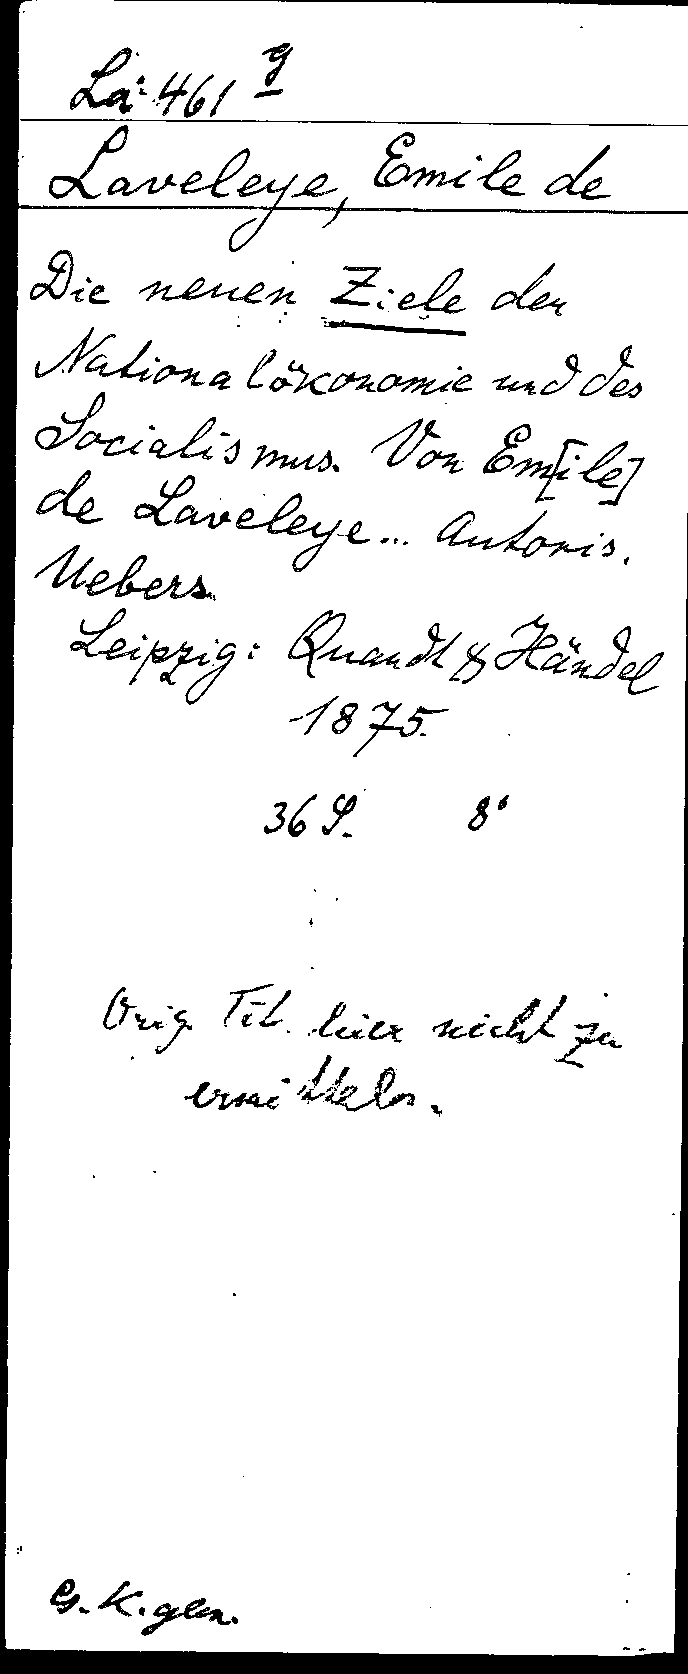 La: 461 g
Laveleye, Emile de
Die neuen Ziele der
Nationalökonomie und des
Socialismus. Von Em[ile]
de Laveleye... Autoris.
Uebers.
Leipzig: Quandt & Händel
1875.
36 S. 8°
Orig. Tit. hier nicht zu
ermitteln.
G. K. glm.